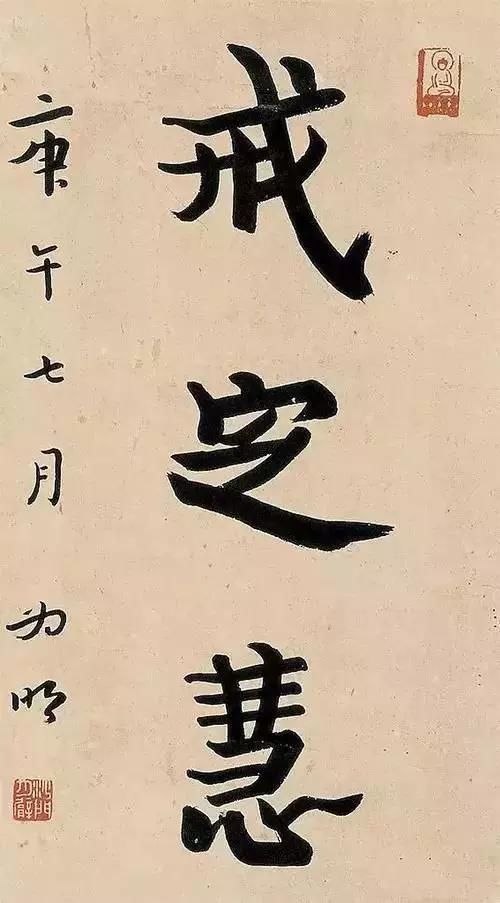 戒定慧
庚午七月 为明